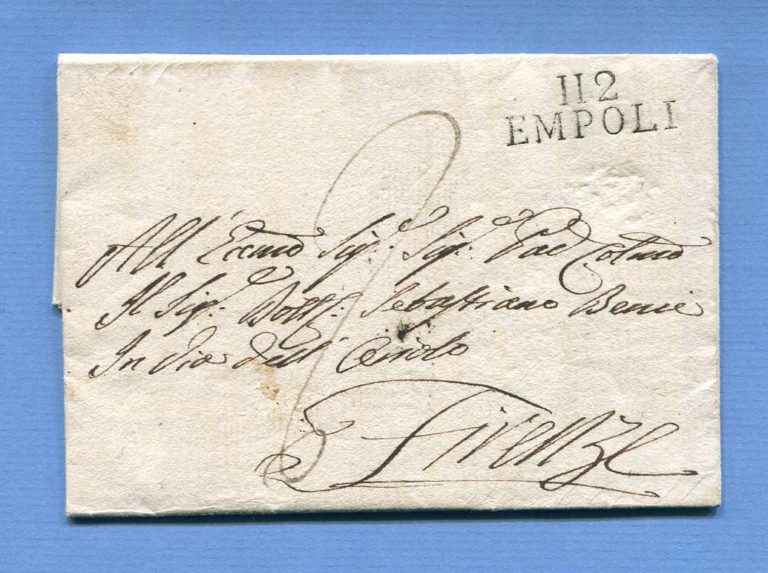 112
EMPOLI
All' Eccmo Sigre Sigre Pad Colmo
Il Sigre Dottre Sebastiano Benci
In Via dell'
Firenze